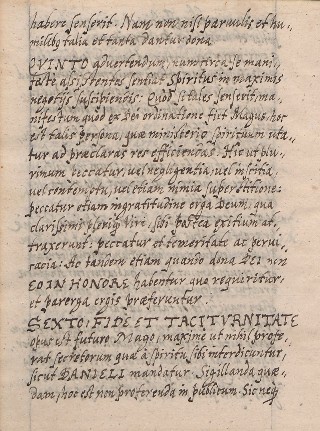 habere senserit. Nam non nisi parvulis et hu-
milibus talia et tanta dantur dona
QVINTO advertendum, num circa se mani-
feste assistentes sentiat Spiritus in maximis
negotijs suscipiendis. Quod si tales senserit, ma-
nifestum quod ex Dei ordinatione fiet Magus, hoc
est talis Persona, quae ministerio spirituum uta-
tur ad praeclaras res efficiendas. Hic ut plu-
rimum peccatur, vel negligentia, vel inscitia,
vel contemptu, vel etiam nimia superstitione:
peccatur etiam ingratitudine erga Deum, qua
clarissimi pleriq; viri sibi postea exitium at-
traxerunt: peccatur et temeritate ac pervi-
cacia: Ac tandem etiam quando dona DEI non
EO IN HONORE habentur quo requiritur,
et parerga ergis praeferuntur.
SEXTO: FIDE ET TACITVRNITATE
opus est futuro Mago, maxime ut nihil profe-
rat secretorum quae a spiritu sibi interdicuntur,
sicut DANIELI mandatur Sigillanda quae-
dam, hoc est non proferenda in publicum. Sic neq;